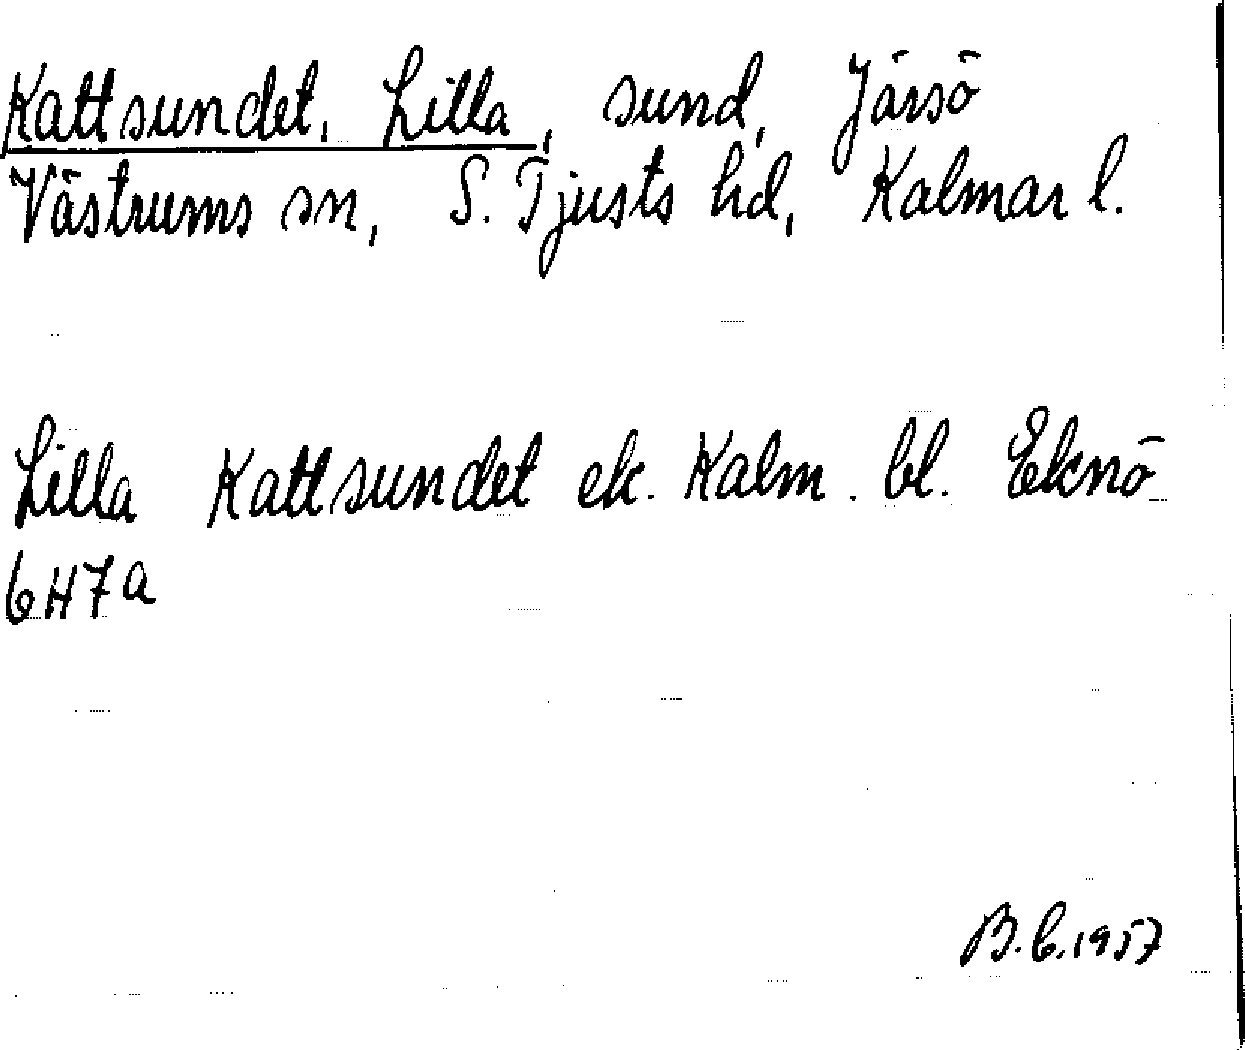 Kattsundet, Lilla, sund, Järsö
Västrums sn, S. Tjusts hd, Kalmar l.
Lilla Kattsundet ek. Kalm. bl. Eknö
6H7a
B.C.1957